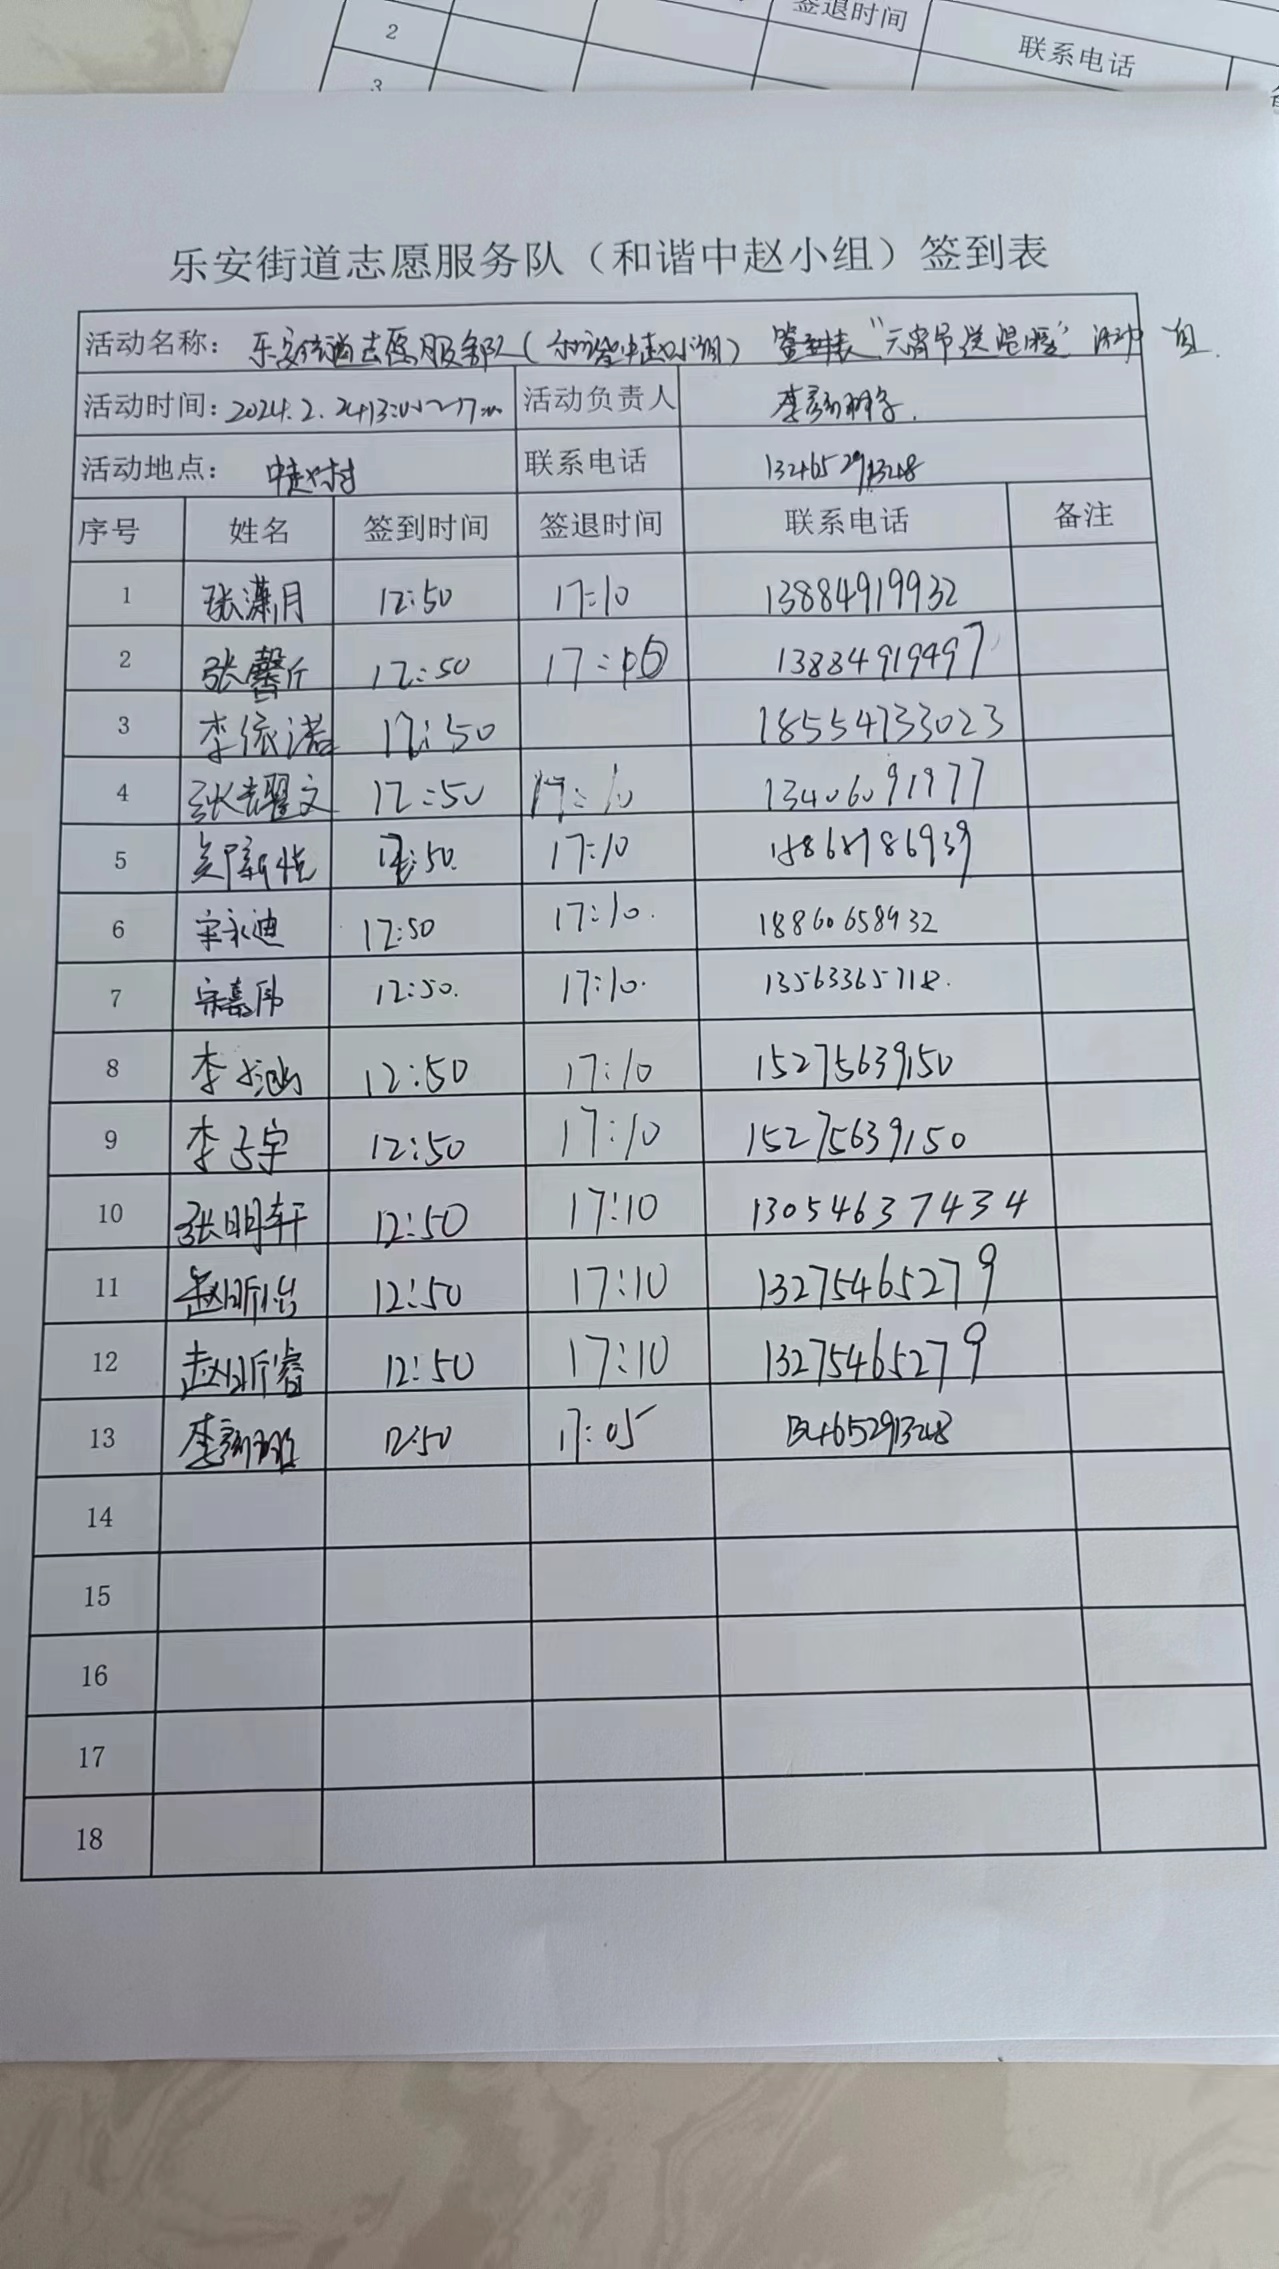 签退时间
2
联系电话
3
乐安街道志愿服务队（和谐中赵小组）签到表
活动名称： 乐安街道志愿服务队（和谐中赵小组） 签到表 “元宵节送温暖” 活动
活动时间：2024.2.24 13:00～17:00 活动负责人
活动地点： 中赵村 联系电话 13465291328
序号 姓名 签到时间 签退时间 联系电话 备注
1 张潇月 12:50 17:10 13884919932
2 张馨斤 12:50 17: 13884919497
3 李依诺 12:50 18554733023
4 12:50 17:10 13406091977
5 :50 17:10
6 宋永迪 12:50 17:10. 18860658932
7 宋嘉伟 12:50. 17:10. 13563365718.
8 李 12:50 17:10 15275639150
9 李子宇 12:50 17:10 15275639150
10 张明轩 12:50 17:10 13054637434
11 赵昕怡 12:50 17:10 13275465279
12 赵昕睿 12:50 17:10 13275465279
13 李 12:50 17:05
14
15
16
17
18